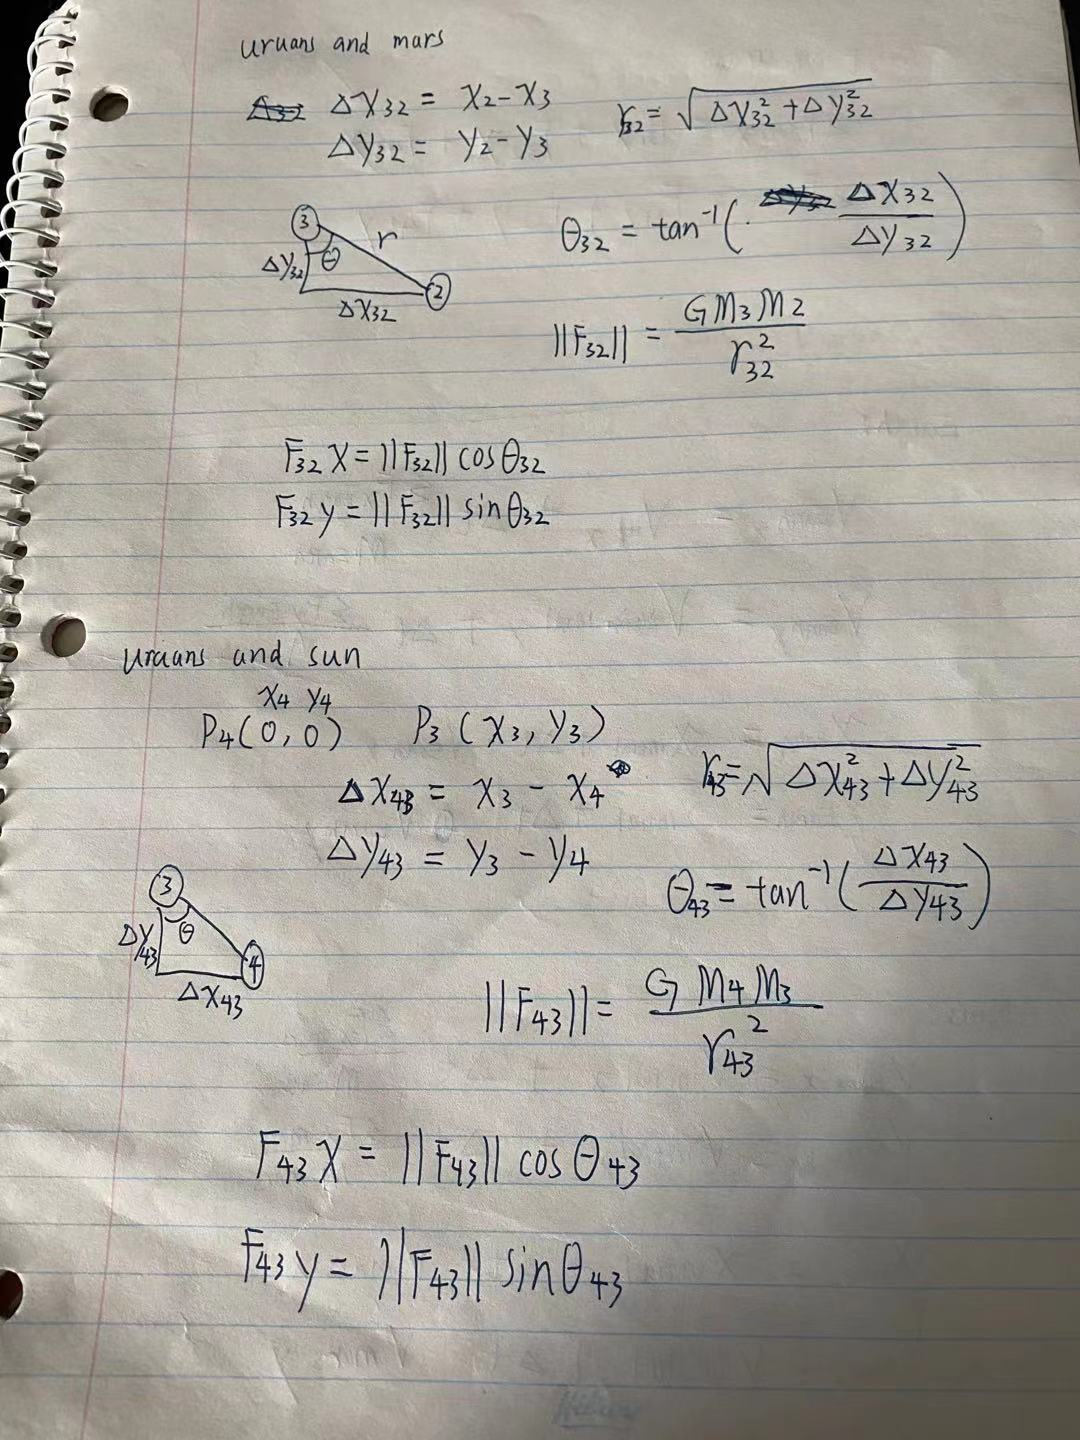 uruans and mars
ΔX32 = X2-X3
r32 = √ΔX32² + ΔY32²
ΔY32 = Y2-Y3
θ32 = tan⁻¹(ΔX32/ΔY32)
3
r
ΔY32
θ
2
ΔX32
||F32|| = GM3M2/r32²
F32 X = ||F32|| cosθ32
F32 y = ||F32|| sinθ32
uraans and sun
X4 Y4
P4(0,0) P3(X3, Y3)
ΔX43 = X3 - X4
r43 = √ΔX43² + ΔY43²
ΔY43 = Y3 - Y4
θ43 = tan⁻¹(ΔX43/ΔY43)
3
ΔY43
θ
4
ΔX43
||F43|| = G M4M3/r43²
F43 X = ||F43|| cos θ43
F43 y = ||F43|| sinθ43